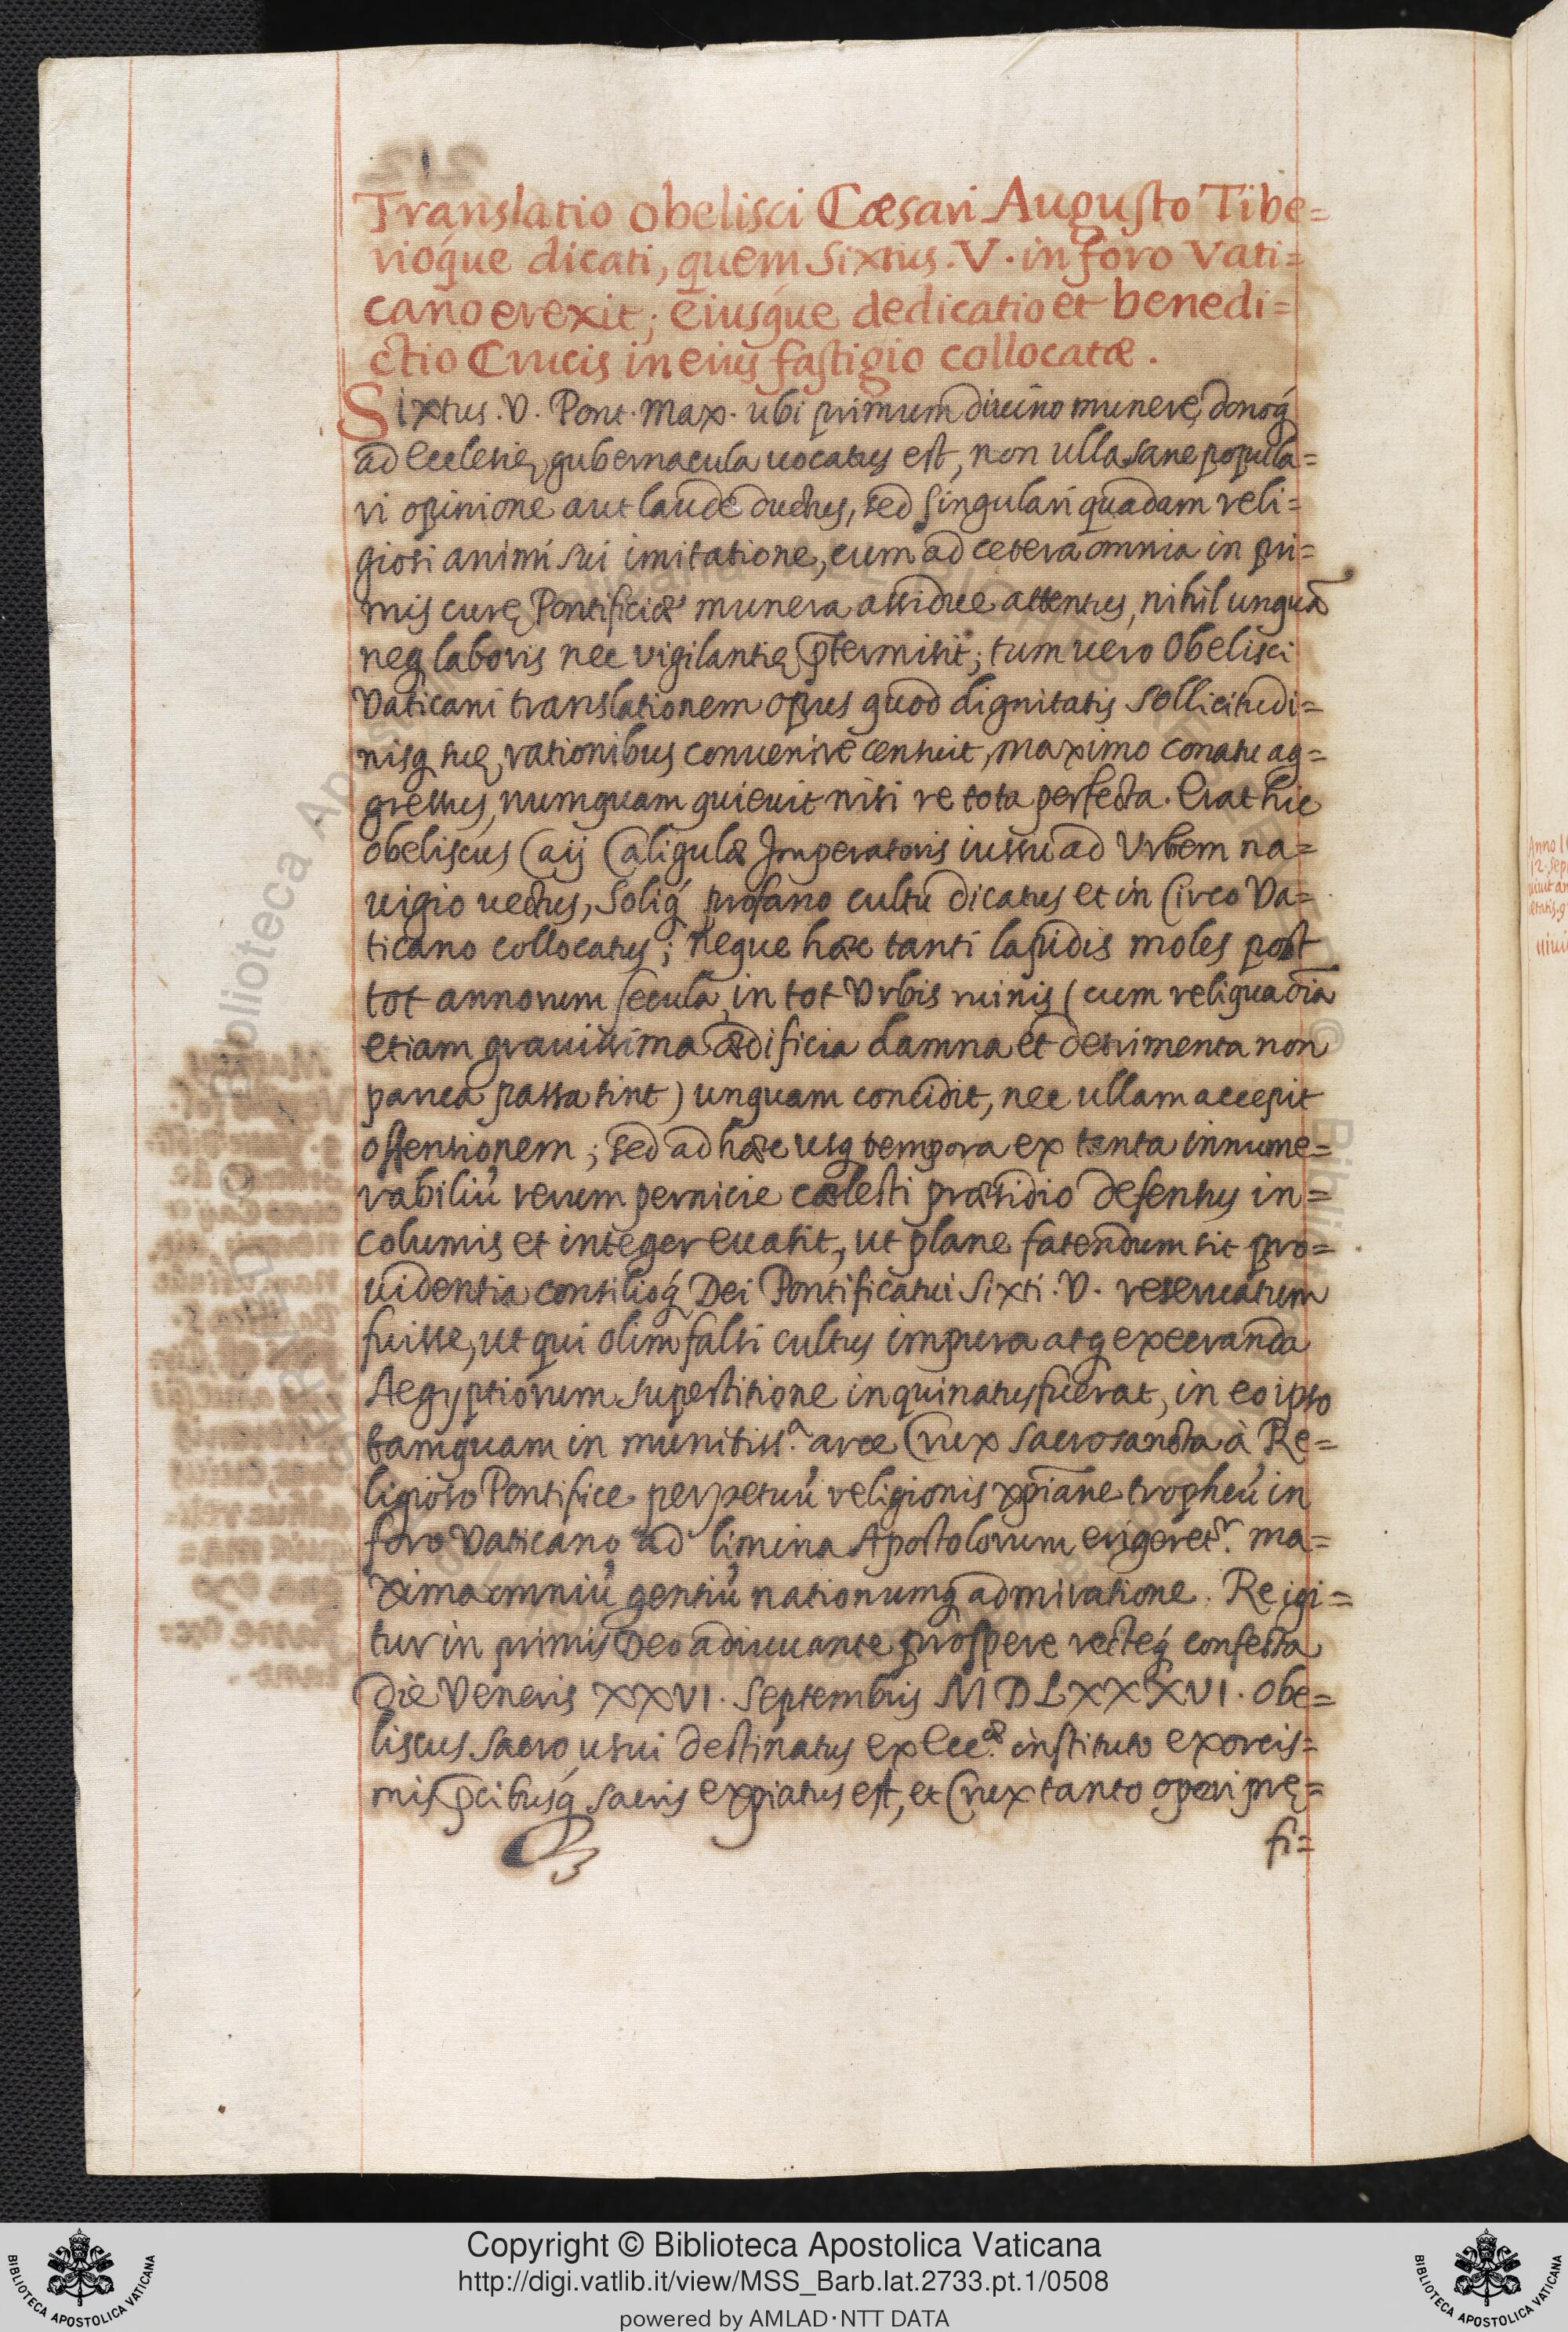 Translatio obelisci Cæsari Augusto Tibe=
rioque dicati, quem Sixtus. V. in foro Vati=
cano erexit; eiusque dedicatio et benedi=
ctio Crucis in eius fastigio collocatæ.
Sixtus. V. Pont. Max. ubi primum diuino munere, donoq́
ad Ecclesię gubernacula uocatus est, non ulla sane popula=
ri opinione aut laude ductus, sed singulari quadam reli=
giosi animi sui imitatione, cum ad cetera omnia in pri=
mis curę Pontificiæ munera assidue attentus, nihil unquā
neq laboris nec vigilantię p̄termisit; tum uero Obelisci
Vaticani translationem opus quod dignitatis sollicitudi=
nisq suę rationibus conuenire censuit, maximo conatu ag=
gressus, numquam quieuit nisi re tota perfecta. Erat hic
obeliscus Caij Caligulæ Imperatoris iussu ad Vrbem na=
uigio uectus, Soliq́ profano cultu dicatus et in Circo Va=
ticano collocatus; neque hæc tanti lapidis moles post
tot annorum secula, in tot Vrbis ruinis (cum reliqua oīa
etiam grauissima ædificia damna et detrimenta non
pauca passa sint) unquam concidit, nec ullam accepit
offensionem; sed ad hæc usq tempora ex tanta innume=
rabiliū rerum pernicie cælesti præsidio defensus in=
columis et integer euasit, ut plane fatendum sit pro=
uidentia consilioq́ Dei Pontificatui Sixti. V. reseruatum
fuisse, ut qui olim falsi cultus impura atq execranda
Aegyptiorum superstitione inquinatus fuerat, in eo ipso
tamquam in munitiss.ᵃ arce Crux sacrosancta à Re=
ligioso Pontifice perpetuū religionis xp̄iane tropheū in
foro Vaticano ad limina Apostolorum erigeret.ʳ ma=
xima omniū gentiū nationumq admiratione. Re igi=
tur in primis Deo adiuuante prospere recteq́ confecta
die Veneris XXVI. Septembris MDLXXXVI. Obe=
liscus sacro usui destinatus ex Ecc.æ instituto exorcis=
mis p̄cibusq́ sacris expiatus est, et Crux tanto operi prę=
fi=
Copyright © Biblioteca Apostolica Vaticana
http://digi.vatlib.it/view/MSS_Barb.lat.2733.pt.1/0508
powered by AMLAD·NTT DATA
BIBLIOTECA APOSTOLICA VATICANA
BIBLIOTECA APOSTOLICA VATICANA